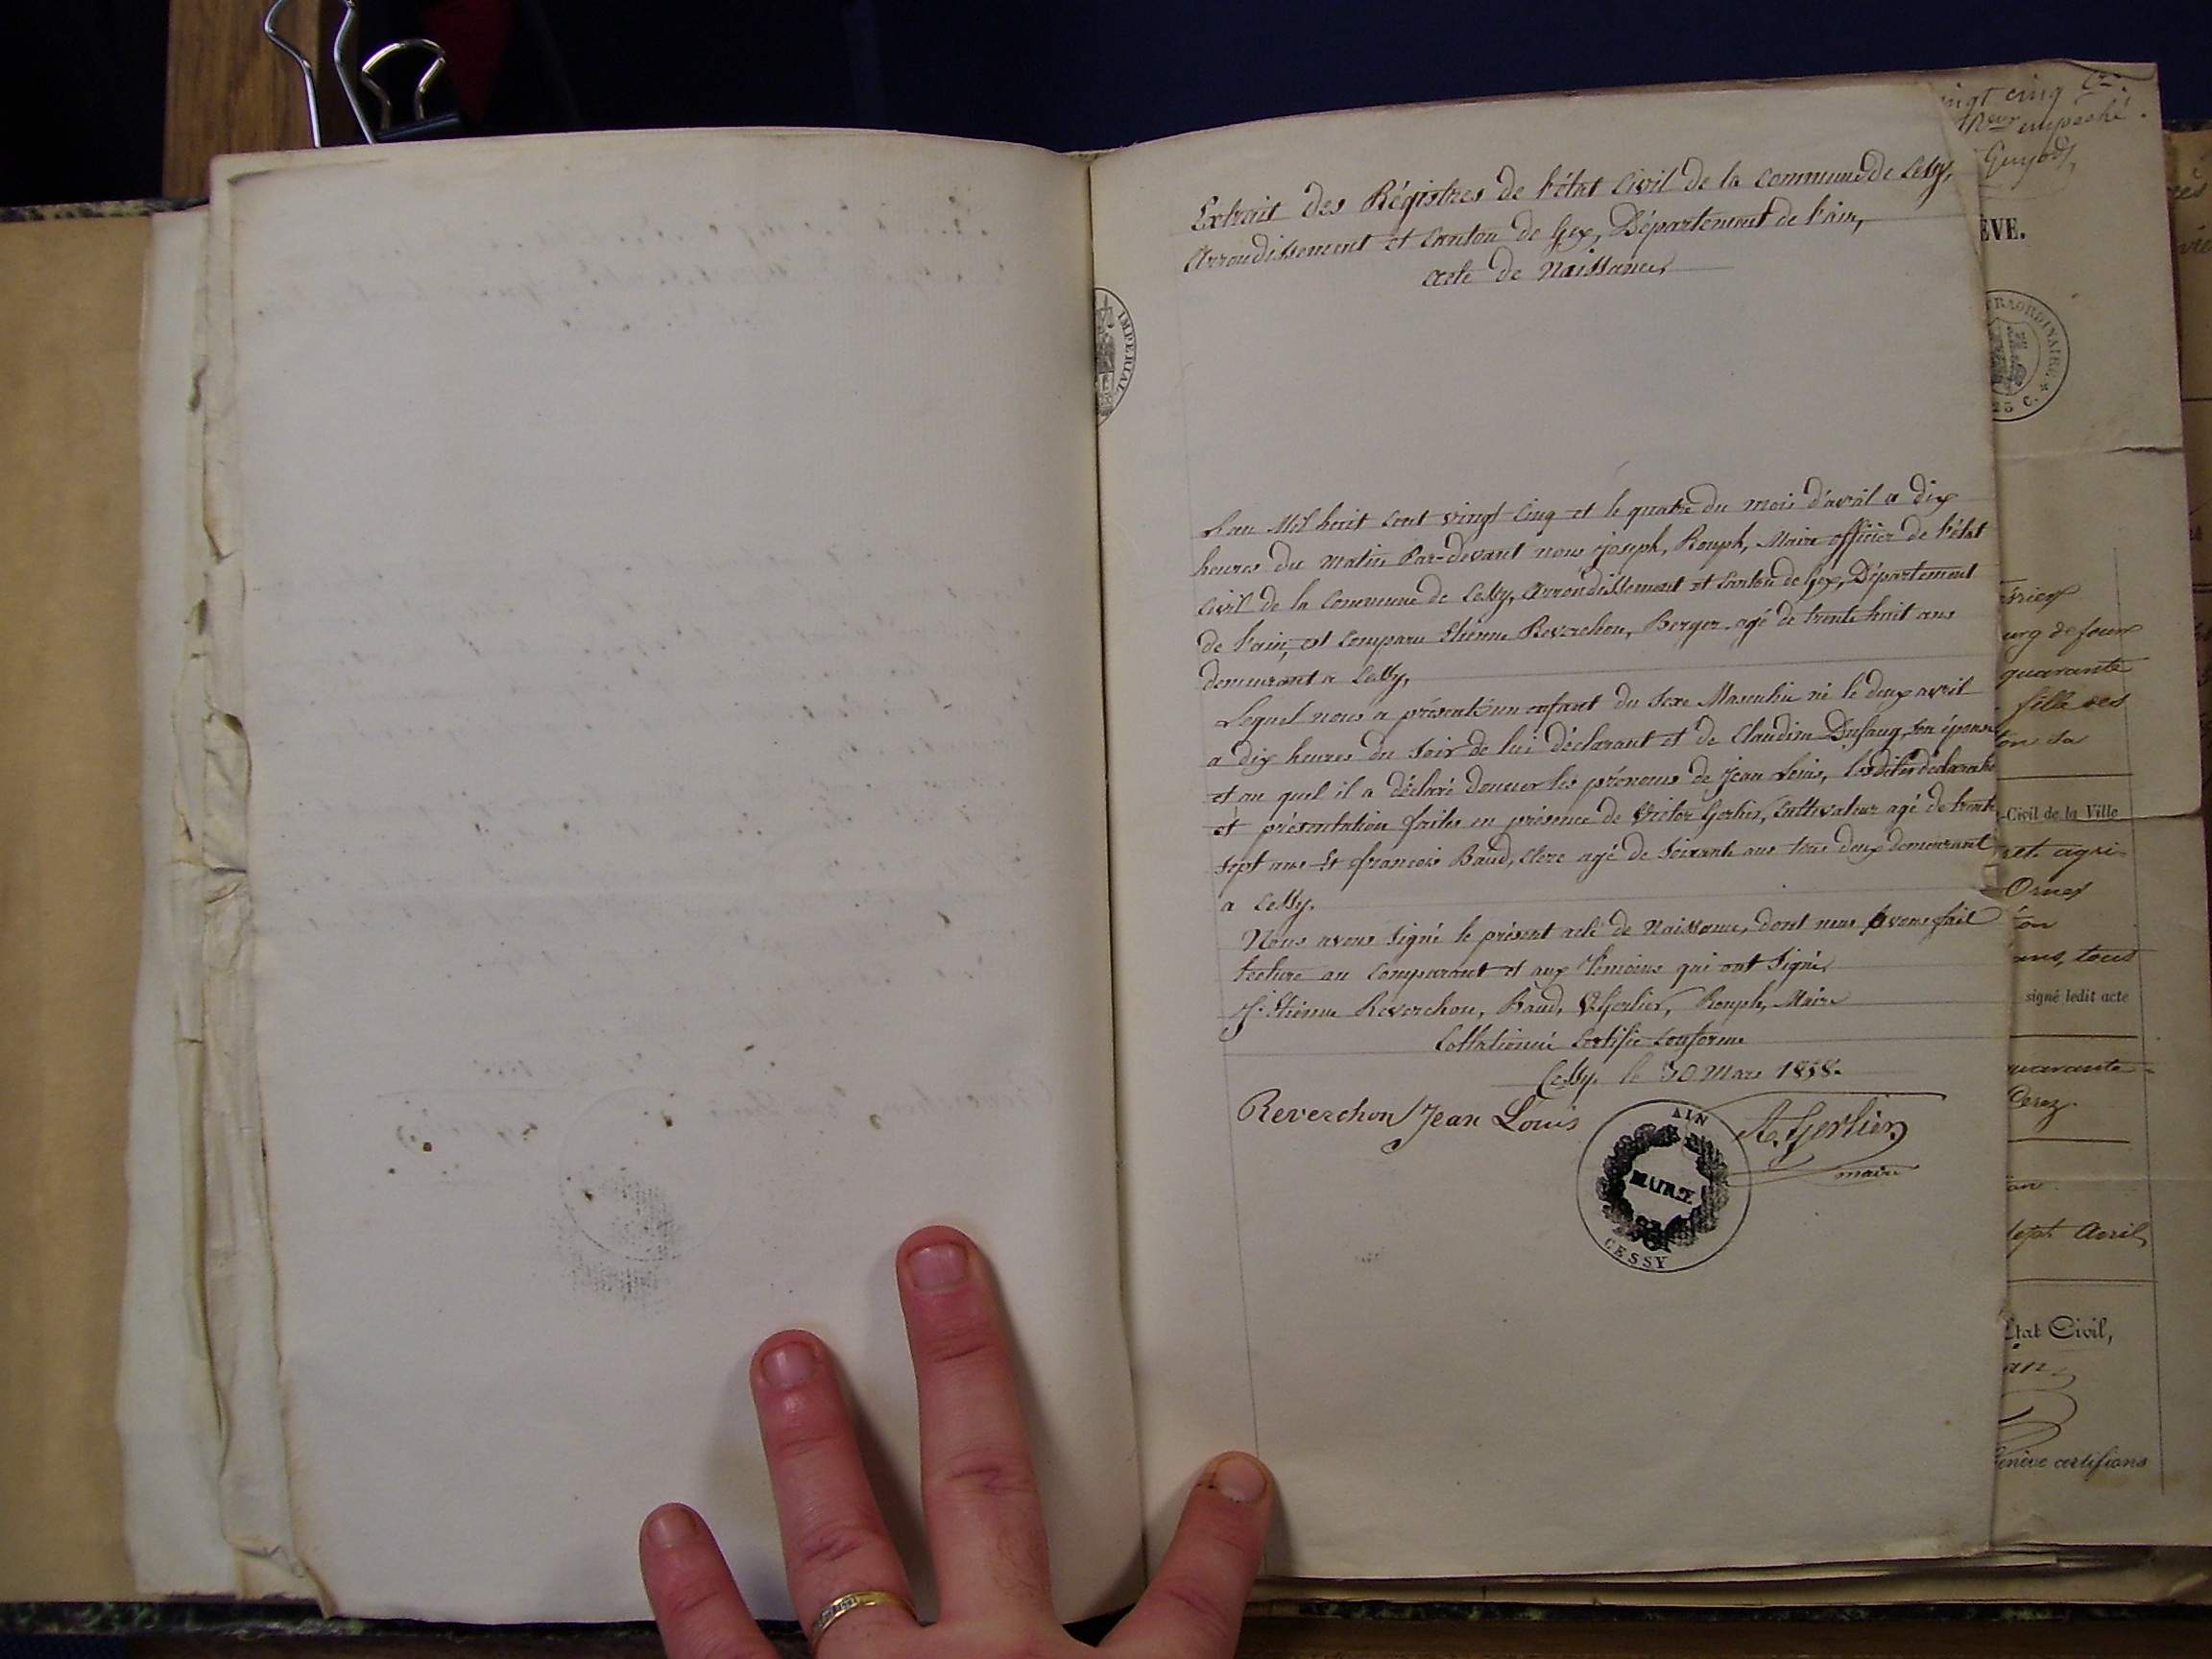 Extrait des Régistres de l'état Civil de la Commune de Cessy,
Arrondissement et Canton de Gex, Département de l'ain,
acte de Naissance,
IMPERIAL
L'an Mil huit cent vingt cinq et le quatre du mois d'avril a dix
heures du matin Par-devant nous joseph, Rouph, Maire officier de l'état
Civil de la Commune de Cessy, Arrondissement et Canton de Gex, Département
de l'ain, est comparu Etienne Reverchon, Berger agé de trente huit ans
demeurant a Cessy,
Lequel nous a présenté un enfant du Sexe Masculin né le deux avril
a dix heures du Soir de lui déclarant et de Claudine Dufaug, son épouse
et au quel il a déclaré donner les prénoms de Jean Louis, lesdites déclaration
et présentation faites en présence de Victor Gerlier, Cultivateur agé de trente
sept ans Et françois Baud, Clerc agé de Soixante ans tous deux demeurant
a Cessy.
Nous avons Signé le présent acte de Naissance, dont nous avons fait
lecture au Comparant et aux Témoins qui ont Signé,
Etienne Reverchon, Baud, V. Gerlier, Rouph, Maire
Collationné Certifié Conforme
Cessy, le 30 Mars 1858.
Reverchon Jean Louis
A. Gerlier
maire
AIN
MAIRIE
CESSY
vingt cinq
empeché.
Guyod,
ÈVE.
TRAORDINAIRE
25 C.
urg de four
quarante
fille des
sa
Civil de la Ville
agri-
tous
signé ledit acte
quarante
Cerez
sept Avril
État Civil,
Genève certifions